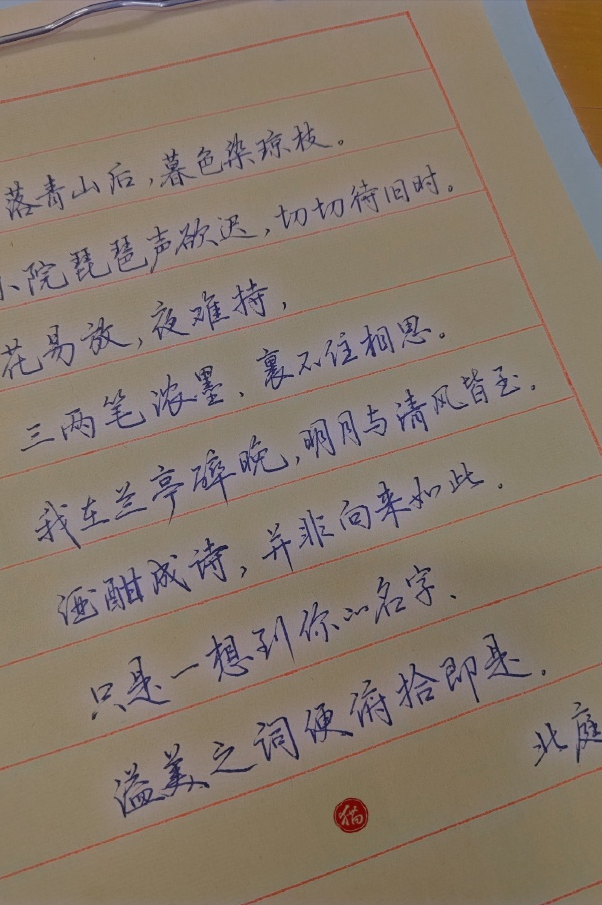 落青山后，暮色染琼枝。
小院琵琶声欲迟，切切待旧时。
花易放，夜难持，
三两笔浓墨、裹不住相思。
我在兰亭醉晚，明月与清风皆至。
酒酣成诗，并非向来如此。
只是一想到你的名字、
溢美之词便俯拾即是。
北庭
猫